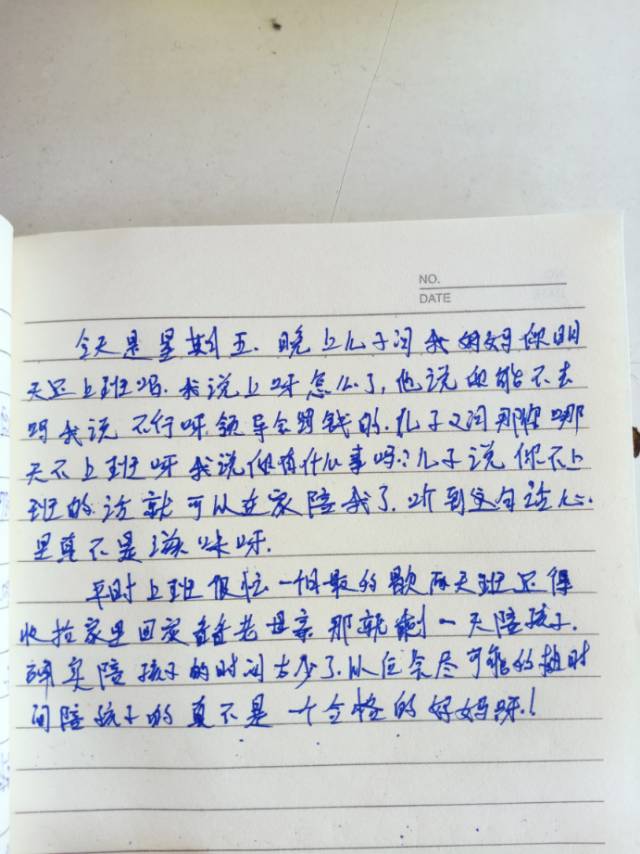 NO.
DATE
今天是星期五.晚上儿子问我妈妈你明
天还上班吗.我说上呀怎么了,他说你能不去
吗我说不行呀领导会罚钱的.儿子又问那你哪
天不上班呀我说你有什么事吗?儿子说你不上
班的话就可以在家陪我了.听到这句话心
里真不是滋味呀.
平时上班很忙一个的歇两天班还得
收拾家里回家看看老母亲那就剩一天陪孩子.
确实陪孩子的时间太少了.以后余尽可能的抽时
间陪孩子的真不是一个合格的好妈呀!